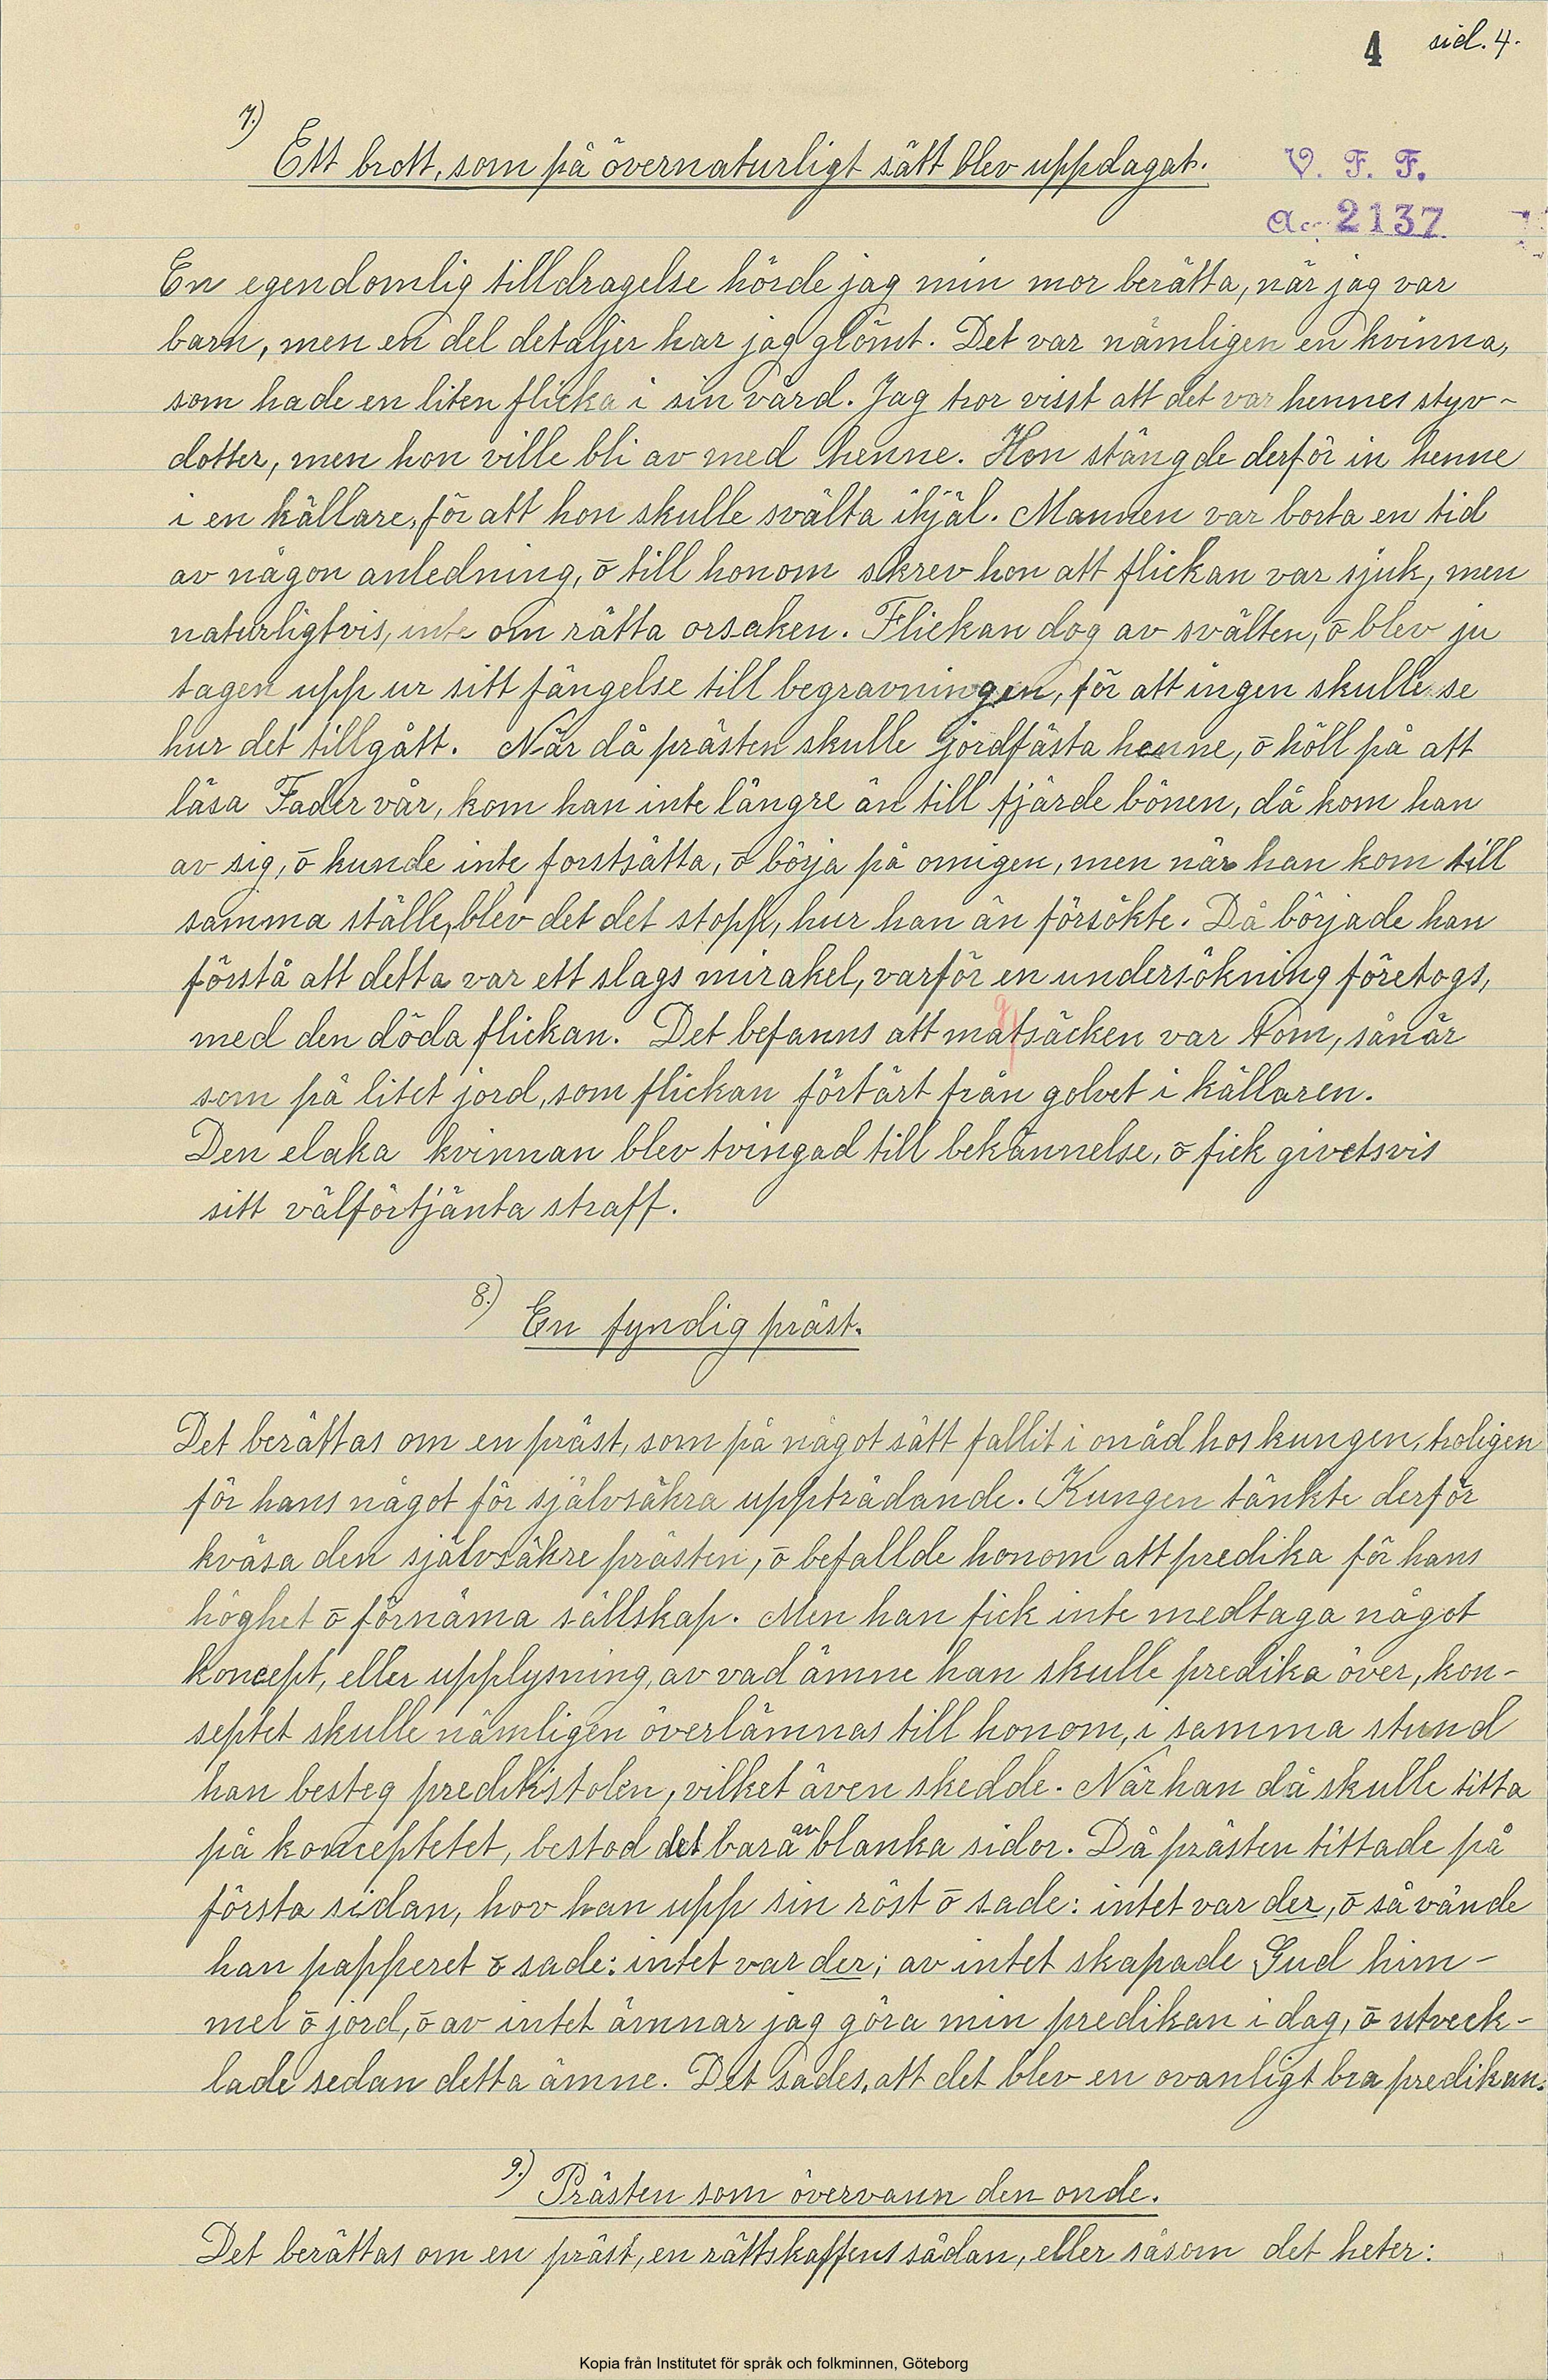 4 sid. 4.
7.) Ett brott, som på övernaturligt sätt blev uppdagat.
V. F. F.
Acc. 2137
En egendomlig tilldragelse hörde jag min mor berätta, när jag var
barn, men en del detaljer har jag glömt. Det var nämligen en kvinna,
som hade en liten flicka i sin vård. Jag tror visst att det var hennes styv-
dotter, men hon ville bli av med henne. Hon stängde derför in henne
i en källare, för att hon skulle svälta ihjäl. Mannen var borta en tid
av någon anledning, o till honom skrev hon att flickan var sjuk, men
naturligtvis, inte om rätta orsaken. Flickan dog av svälten, o blev ju
tagen upp ur sitt fängelse till begravningen, för att ingen skulle se
hur det tillgått. När då prästen skulle jordfästa henne, o höll på att
läsa Fader vår, kom han inte längre än till fjärde bönen, då kom han
av sig, o kunde inte forstsätta, o börja på omigen, men när han kom till
samma ställe, blev det det stopp, hur han än försökte. Då började han
förstå att detta var ett slags mirakel, varför en undersökning företogs,
med den döda flickan. Det befanns att matsäcken var tom, sånär
som på litet jord, som flickan förtärt från golvet i källaren.
Den elaka kvinnan blev tvingad till bekännelse, o fick givetsvis
sitt välförtjänta straff.
8.) En fyndig präst.
Det berättas om en präst, som på något sätt fallit i onåd hos kungen, troligen
för hans något för självsäkra uppträdande. Kungen tänkte derför
kväsa den självsäkre prästen, o befallde honom att predika för hans
höghet o förnäma sällskap. Men han fick inte medtaga något
koncept, eller upplysning, av vad ämne han skulle predika över, kon-
septet skulle nämligen överlämnas till honom, i samma stund
han besteg predikstolen, vilket även skedde. När han då skulle titta
på konceptetet, bestod det bara av blanka sidor. Då prästen tittade på
första sidan, hov han upp sin röst o sade: intet var der, o så vände
han papperet o sade: intet var der; av intet skapade Gud him-
mel o jord, o av intet ämnar jag göra min predikan i dag, o utveck-
lade sedan detta ämne. Det sades, att det blev en ovanligt bra predikan.
9.) Prästen som övervann den onde.
Det berättas om en präst, en rättskaffens sådan, eller såsom det heter:
Kopia från Institutet för språk och folkminnen, Göteborg